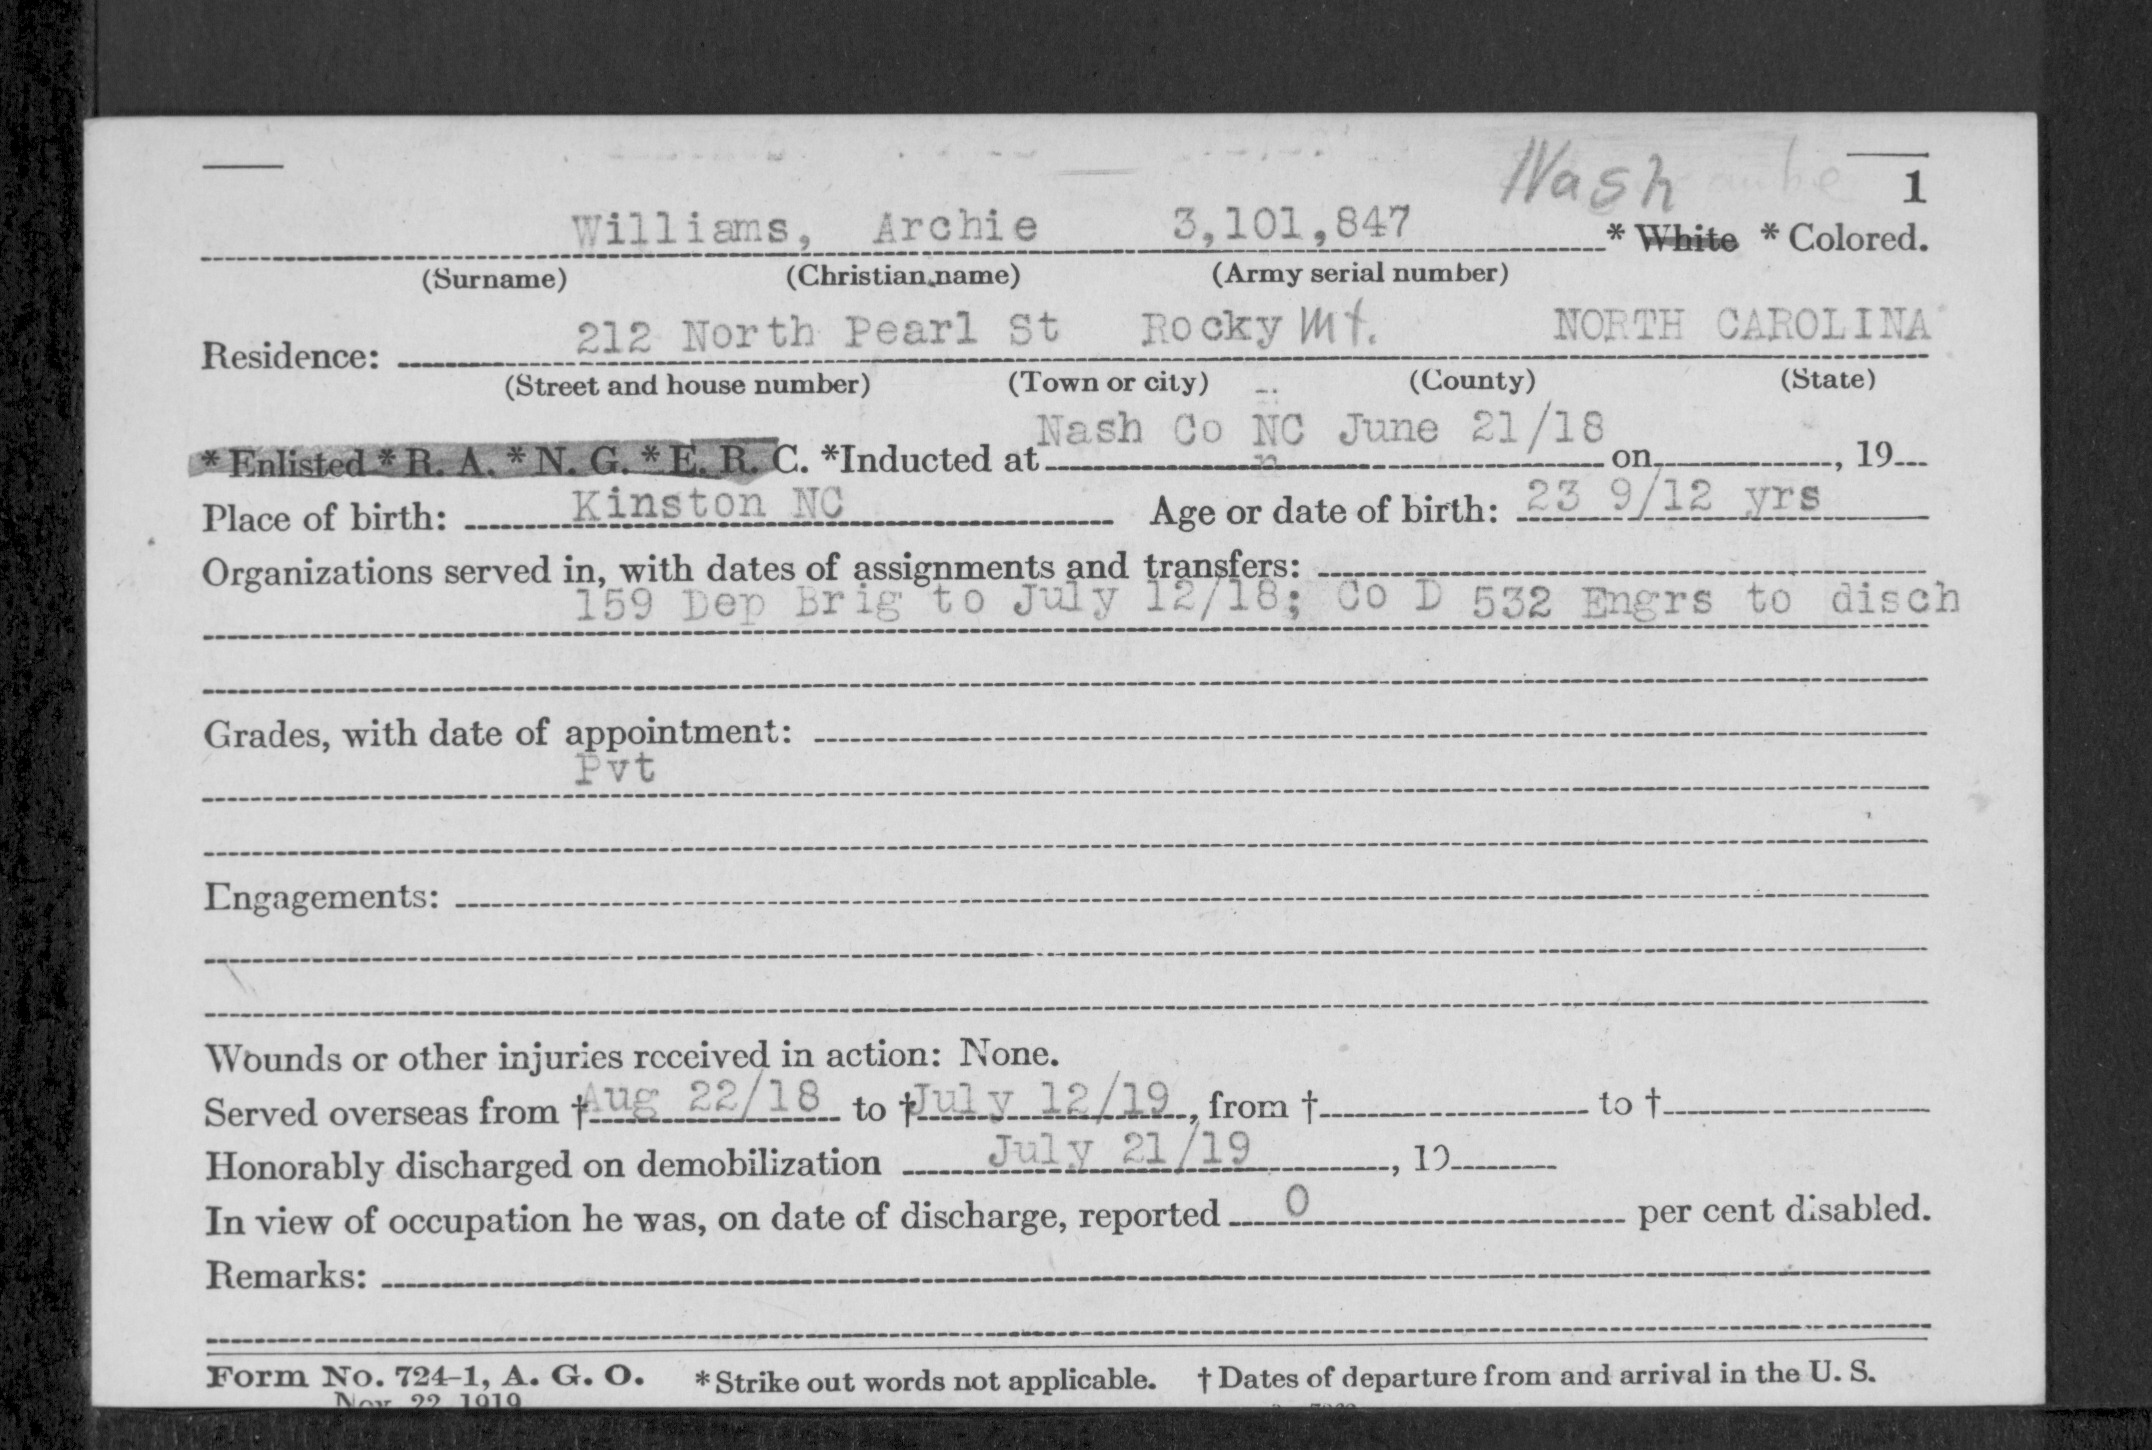 Nash 1
Williams, Archie 3,101,847 * White * Colored.
(Surname) (Christian name) (Army serial number)
Residence: 212 North Pearl St Rocky Mt. NORTH CAROLINA
(Street and house number) (Town or city) (County) (State)
* Enlisted * R. A. * N. G. * E. R. C. *Inducted at Nash Co NC June 21/18 on , 19
Place of birth: Kinston NC Age or date of birth: 23 9/12 yrs
Organizations served in, with dates of assignments and transfers:
159 Dep Brig to July 12/18; Co D 532 Engrs to disch
Grades, with date of appointment:
Pvt
Engagements:
Wounds or other injuries received in action: None.
Served overseas from † Aug 22/18 to † July 12/19, from † to †
Honorably discharged on demobilization July 21/19 , 19
In view of occupation he was, on date of discharge, reported 0 per cent disabled.
Remarks:
Form No. 724-1, A. G. O. * Strike out words not applicable. † Dates of departure from and arrival in the U. S.
Nov. 22, 1919